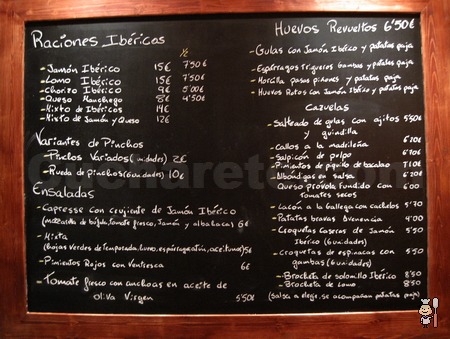 Raciones Ibéricas
½
- Jamón Ibérico 15€ 7'50€
- Lomo Ibérico 15€ 7'50€
- Chorizo Ibérico 9€ 5'00€
- Queso Manchego 8€ 4'50€
- Mixto de Ibéricos 14€
- Mixto de Jamón y Queso 12€
Variantes de Pinchos
- Pinchos Variados (unidades) 2€
- Rueda de pinchos (6 unidades) 10€
Ensaladas
- Capresse con crujiente de Jamón Ibérico
(mozzarella de búfala, tomate fresco, Jamón y albahaca) 6€
- Mixta
(hojas verdes de temporada, huevo, espárragos, atún, aceitunas) 5€
- Pimientos Rojos con Ventresca 6€
- Tomate fresco con anchoas en aceite de
oliva Virgen 5'50€
Huevos Revueltos 6'50€
- Gulas con Jamón Ibérico y patatas paja
- Espárragos trigueros Gambas y patatas paja
- Morcilla pasas piñones y patatas paja
- Huevos Rotos con Jamón Ibérico y patatas paja
Cazuelas
- Salteado de gulas con ajitos 5'50€
y guindilla
- Callos a la madrileña
- Salpicón de pulpo
- Pimientos de piquillo de bacalao
- Albóndigas en salsa
- Queso provola fundido con
Tomates secos
- Lacón a la Gallega con cachelos 5'70
- Patatas bravas Avenencia 4'00
- Croquetas Caseras de Jamón 5'50
Ibérico (6 unidades)
- Croquetas de espinacas con 5'50
gambas (6 unidades)
- Brocheta de solomillo Ibérico 8'50
- Brocheta de Lomo 8'50
(Salsa a elegir, se acompañan patatas paja)